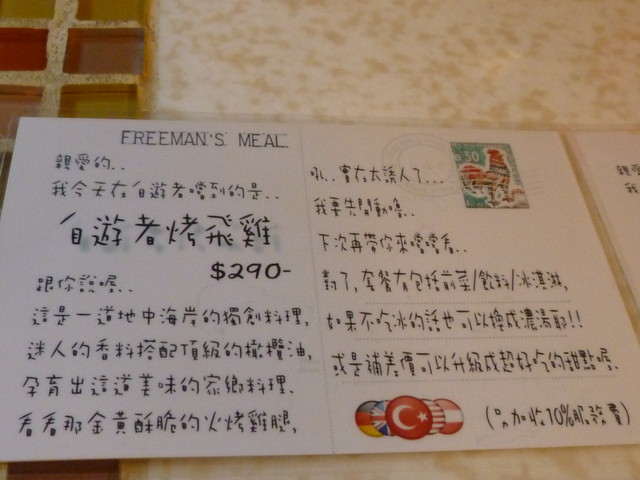 FREEMAN'S MEAL
親愛的..
我今天在自遊者嚐到的是..
自遊者烤飛雞
$290-
跟你說喔..
這是一道地中海岸的獨創料理,
迷人的香料搭配頂級的橄欖油,
孕育出這道美味的家鄉料理.
看看那金黃酥脆的火烤雞腿,
吼..實在太誘人了...
我要先開動嚕..
下次再帶你來嚐嚐看..
對了,套餐有包括前菜/飲料/冰淇淋,
如果不吃冰的話也可以換成濃湯耶!!
或是補差價可以升級成超好吃的甜點喔.
加收10%服務費)
0.30
親愛
我